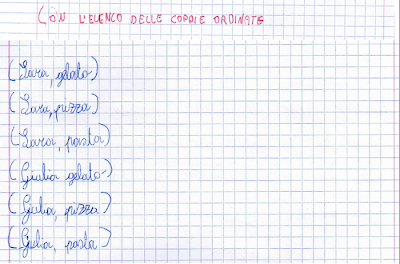 CON L'ELENCO DELLE COPPIE ORDINATE
(Sara, gelato)
(Sara, pizza)
(Sara, pasta)
(Giulia gelato)
(Giulia, pizza)
(Giulia, pasta)